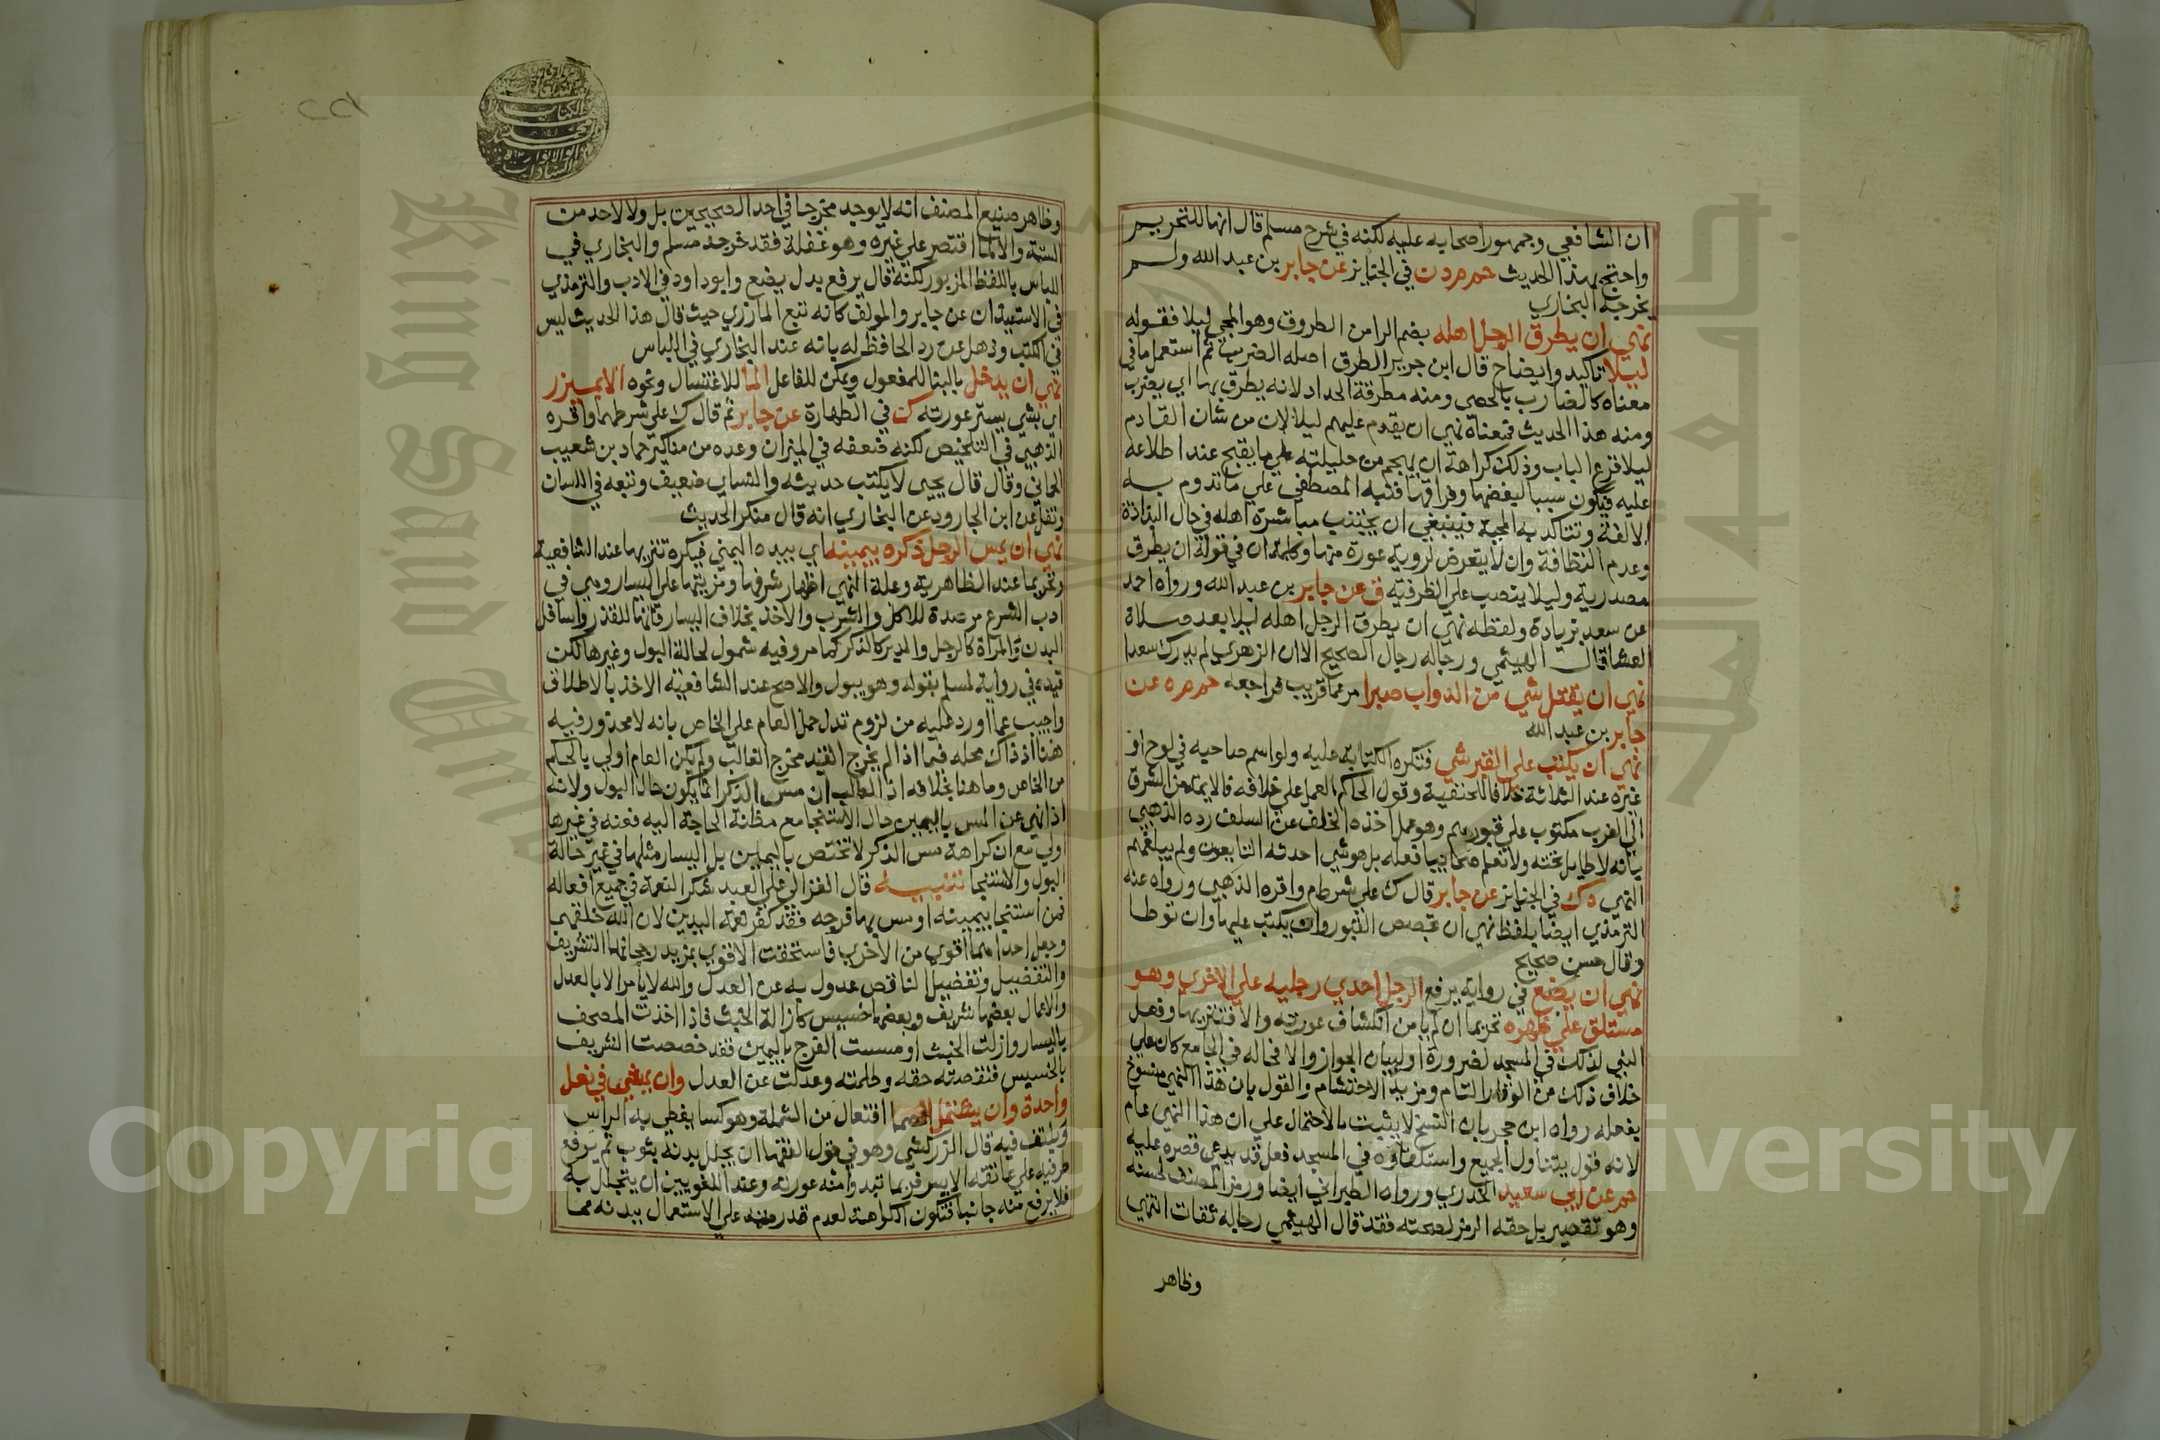 ان الشافعي وجمهور اصحابه عليه لكنه في شرح مسلم قال انها للتحريم
واحتج بهذا الحديث حم م د ت في الجنايز عن جابر بن عبد الله ولم
يخرجه البخاري
نهي ان يطرق الرجل اهله بضم الرا من الطروق وهو المجي ليلا فقوله
ليلا تاكيد وايضاح قال ابن جرير الطرق اصله الضرب ثم استعمل ما في
معناه كالضارب بالحصي ومنه مطرقة الحداد لانه يطرق بها اي يضرب
ومنه هذا الحديث فمعناه نهي ان يقدم عليهم ليلا لان من شان القادم
ليلا قرع الباب وذلك كراهة ان يهجم من حليلته علي ما يقبح عند اطلاعه
عليه فيكون سببا لبغضها وفراقها فنبه المصطفي علي ما تدوم به
الالفة وتتاكد به المحبة فينبغي ان يجتنب مباشرة اهله في حال البذاذة
وعدم النظافة وان لا يتعرض لروية عورة منها وكلمة ان في قوله ان يطرق
مصدرية وليلا ينتصب علي الظرفية ق عن جابر بن عبد الله ورواه احمد
عن سعد بزيادة ولفظه نهي ان يطرق الرجل اهله ليلا بعد صلاة
العشا قال الهيثمي ورجاله رجال الصحيح الا ان الزهري لم يدرك سعدا
نهي ان يقتل شي من الدواب صبرا مر عما قريب فراجعه حم م ه عن
جابر بن عبد الله
نهي ان يكتب علي القبر شي فتكره الكتابة عليه ولو اسم صاحبه في لوح او
غيره عند الثلاثة خلافا للحنفية وقول الحاكم العمل علي خلافه فالايمة من الشرق
الي الغرب مكتوب علي قبورهم وهو عمل اخذه الخلف عن السلف رده الذهبي
بانه لا طايل تحته ولا نعلم صحابيا فعله بل هو شي احدثه التابعون ولم يبلغهم
النهي ه ك في الجنايز عن جابر قال ك علي شرط م واقره الذهبي ورواه عنه
الترمذي ايضا بلفظ نهي ان تجصص القبور وان يكتب عليها وان توطا
وقال حسن صحيح
نهي ان يضع في رواية يرفع الرجل احدي رجليه علي الاخري وهو
مستلق علي ظهره تحريما ان لم يامن انكشاف عورته والا فتنزيها وفعل
النبي لذلك في المسجد لضرورة او لبيان الجواز والا فحاله في المجامع كان علي
خلاف ذلك من الوقار التام ومزيد الاحتشام والقول بان هذا النهي منسوخ
بفعله رواه ابن حجر بان النسخ لا يثبت بالاحتمال علي ان هذا النهي عام
لانه قول يتناول الجميع واستلقاوه في المسجد فعل قد يدعي قصره عليه
حم عن ابي سعيد الخدري ورواه الطبراني ايضا ورمز المصنف لحسنه
وهو تقصير بل حقه الرمز لصحته فقد قال الهيثمي رجاله ثقات انتهي
وظاهر
وظاهر صنيع المصنف انه لا يوجد مخرجا في احد الصحيحين بل ولا لاحد من
الستة والا لما اقتصر علي غيره وهو غفلة فقد خرجه مسلم والبخاري في
اللباس باللفظ المزبور لكنه قال يرفع بدل يضع وابو داود في الادب والترمذي
في الاستيذان عن جابر والمولف كانه تبع المازري حيث قال هذا الحديث ليس
في الكتب وذهل عن رد الحافظ له بانه عند البخاري في اللباس
نهي ان يدخل بالبنا للمفعول ويمكن للفاعل الما للاغتسال ونحوه الا بميزر
اي بشي يستر عورته ك في الطهارة عن جابر ثم قال ك علي شرطهما واقره
الذهبي في التلخيص لكنه ضعفه في الميزان وعده من مناكير حماد بن شعيب
الحماني وقال قال يحيي لا يكتب حديثه والنساي ضعيف وتبعه في اللسان
ونقل عن ابن الجارود عن البخاري انه قال منكر الحديث
نهي ان يمس الرجل ذكره بيمينه اي بيده اليمني فيكره تنزيها عند الشافعية
وتحريما عند الظاهرية وعلة النهي اظهار شرفها ومزيتها علي اليسار وهي في
ادب الشرع مرصدة للاكل والشرب والاخذ بخلاف اليسار فانها للقذر واسافل
البدن والمراة كالرجل والدبر كالذكر كما مر وفيه شمول لحالة البول وغيرها لكن
قيده في رواية لمسلم بقوله وهو يبول والاصح عند الشافعية الاخذ بالاطلاق
واجيب عما اورد عليه من لزوم ترك حمل العام علي الخاص بانه لا محذور فيه
هنا اذ ذاك محله فيما اذا لم يخرج القيد مخرج الغالب ولم يكن العام اولي بالحكم
من الخاص وما هنا بخلافه اذ الغالب ان مس الذكر انما يكون حال البول ولانه
اذا نهي عن المس باليمين حال الاستنجا مع مظنة الحاجة اليه فعنه في غيرها
اولي مع ان كراهة مس الذكر لا تختص باليمين بل اليسار مثلها في غير حالة
البول والاستنجا تنبيه قال الغزالي علي العبد شكر النعمة في جميع افعاله
فمن استنجا بيمينه او مس بها فرجه فقد كفر نعمة اليدين لان الله خلقهما
وجعل احداهما اقوي من الاخري فاستحقت الاقوي بمزيد رجحانها التشريف
والتفضيل وتفضيل الناقص عدول به عن العدل والله لا يامر الا بالعدل
والاعمال بعضها شريف وبعضها خسيس كازالة الخبث فاذا اخذت المصحف
باليسار وازلت الخبث او مسست الفرج باليمين فقد خصصت الشريف
بالخسيس فنقصته حقه وظلمته وعدلت عن العدل وان يمشي في نعل
واحدة وان يشتمل الصما افتعال من الشملة وهو كسا يغطي به الراس
ويلتف فيه قال الزركشي وهو في قول الفقها ان يجلل بدنه بثوب ثم يرفع
طرفيه علي عاتقه الايسر فربما تبدو منه عورته وعند اللغويين ان يتجلل به
فلا يرفع منه جانبا فتكون الكراهة لعدم قدرته علي الاستعمال ببدنه مما
Copyright © King Saud University
جامعة الملك سعود
King Saud University